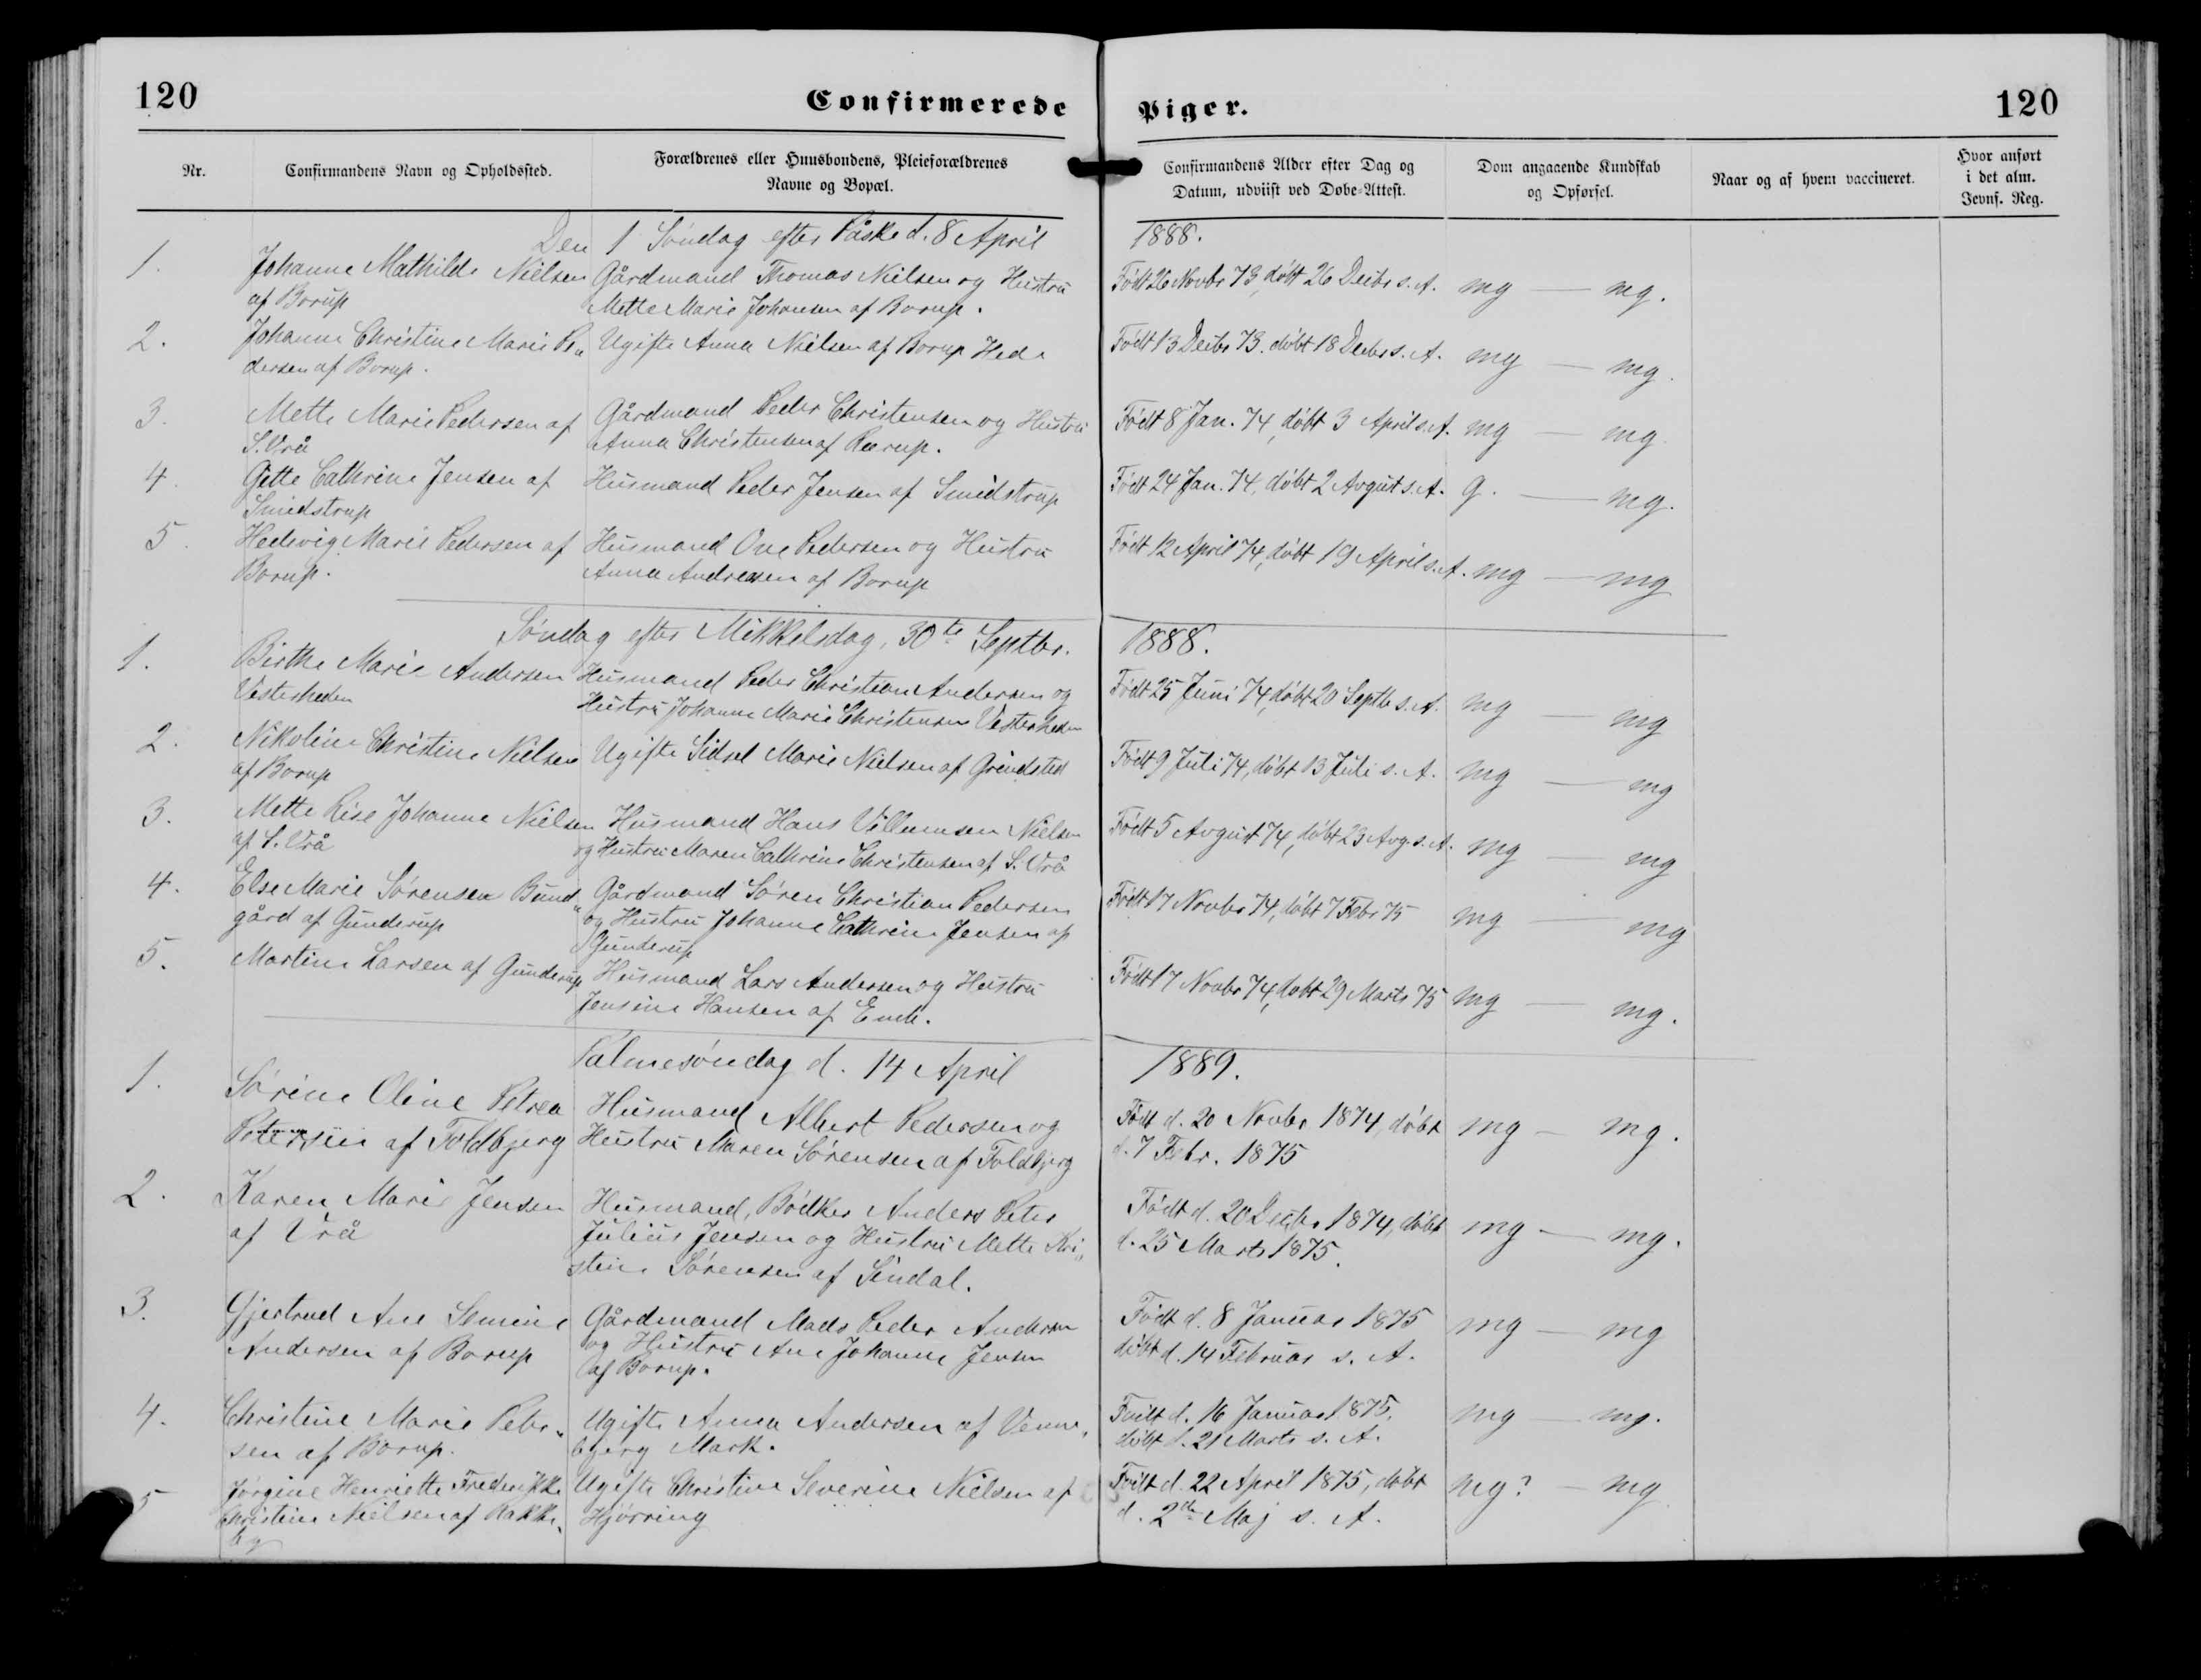 120
Confirmerede
Piger.
120
Nr.
Confirmandens Navn og Opholdssted.
Forældrenes eller Huusbondens, Pleieforældrenes
Navne og Bopæl.
Confirmandens Alder efter Dag og
Datum, udviist ved Døbe-Attest.
Dom angaaende Kundskab
og Opførsel.
Naar og af hvem vaccineret.
Hvor anført
i det alm.
Jevnf. Reg.
Den 1 Søndag efter Påske d. 8 April 1888.
1.
Johanne Mathilde Nielsen
af Borup
Gårdmand Thomas Nielsen og Hustru
Mette Marie Johansen af Borup.
Født 26 Novbr 73, døbt 26 Decbr s. A.
mg — mg.
2.
Johanne Christine Marie Pe„
dersen af Borup.
Ugifte Anna Nielsen af Borup Hede
Født 13 Decbr 73. døbt 18 Decbr s. A.
mg — mg.
3.
Mette Marie Pedersen af
S. Vrå
Gårdmand Peder Christensen og Hustru
Anna Christensen af Rærup.
Født 8 Jan. 74, døbt 3 April s. A.
mg — mg
4.
Gitte Cathrine Jensen af
Smidstrup
Husmand Peder Jensen af Smidstrup
Født 24 Jan. 74, døbt 2 Avgust s. A.
g. — mg.
5.
Hedevig Marie Pedersen af
Borup.
Husmand Ove Pedersen og Hustru
Anna Andreasen af Borup
Født 12 April 74, døbt 19 April s. A.
mg — mg
Søndag efter Mikkelsdag, 30te Septbr. 1888.
1.
Birthe Marie Andersen
Vesterheden
Husmand Peder Christian Andersen og
Hustru Johanne Marie Christensen Vesterheden
Født 25 Juni 74, døbt 20 Septb s. A.
mg — mg
2.
Nikoline Christine Nielsen
af Borup
Ugifte Sidsel Marie Nielsen af Grindsted
Født 9 Juli 74, døbt 13 Juli s. A.
mg — mg
3.
Mette Lise Johanne Nielsen
af S. Vrå
Husmand Hans Villumsen Nielsen
og Hustru Maren Cathrine Christensen af S. Vrå
Født 5 Avgust 74, døbt 23 Avg. s. A.
mg — mg
4.
Else Marie Sørensen Bund„
gård af Gunderup
Gårdmand Søren Christian Pedersen
og Hustru Johanne Cathrine Jensen af
Gunderup
Født 17 Novbr 74, døbt 7 Febr 75
mg — mg
5.
Martine Larsen af Gunderup
Husmand Lars Andersen og Hustru
Jensine Hansen af
Født 17 Novbr 74, døbt 29 Marts 75
mg — mg.
Palmesøndag d. 14 April 1889.
1.
Sørine Oline Petrea
Petersen af Foldbjerg
Husmand Albert Pedersen og
Hustru Maren Sørensen af Foldbjerg
Født d. 20 Novbr 1874, døbt
d. 7 Febr. 1875
mg — mg.
2.
Karen Marie Jensen
af Vrå
Husmand, Bødker Anders Peter
Julius Jensen og Hustru Mette Kri„
stine Sørensen af Sindal.
Født d. 20 Decbr 1874, døbt
d. 25 Marts 1875.
mg — mg.
3.
Gjertrud Ane Semine
Andersen af Borup
Gårdmand Mads Peder Andersen
og Hustru Ane Johanne Jensen
af Borup.
Født d. 8 Januar 1875
døbt d. 14 Februar s. A.
mg — mg
4.
Christine Marie Peter„
sen af Borup.
Ugifte Anna Andersen af Venne„
bjerg Mark.
Født d. 16 Januar 1875,
døbt d. 21 Marts s. A.
mg — mg.
5
Jørgine Henriette Frederikke
Christine Nielsen af Rakke„
by
Ugifte Christine Severine Nielsen af
Hjørring
Født d. 22 April 1875, døbt
d. 2den Maj s. A.
mg? — mg